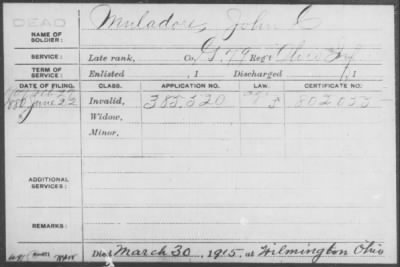 DEAD
NAME OF SOLDIER: Muladore, John C
SERVICE: Late rank, Co. G. 79 Reg't Ohio Inf
TERM OF SERVICE: Enlisted , 1 Discharged , 1
DATE OF FILING. CLASS. APPLICATION NO. LAW. CERTIFICATE NO.
1880 June 22 Invalid, 385.320 802055
Widow,
Minor,
ADDITIONAL SERVICES:
REMARKS:
Died March 30, 1915, at Wilmington Ohio